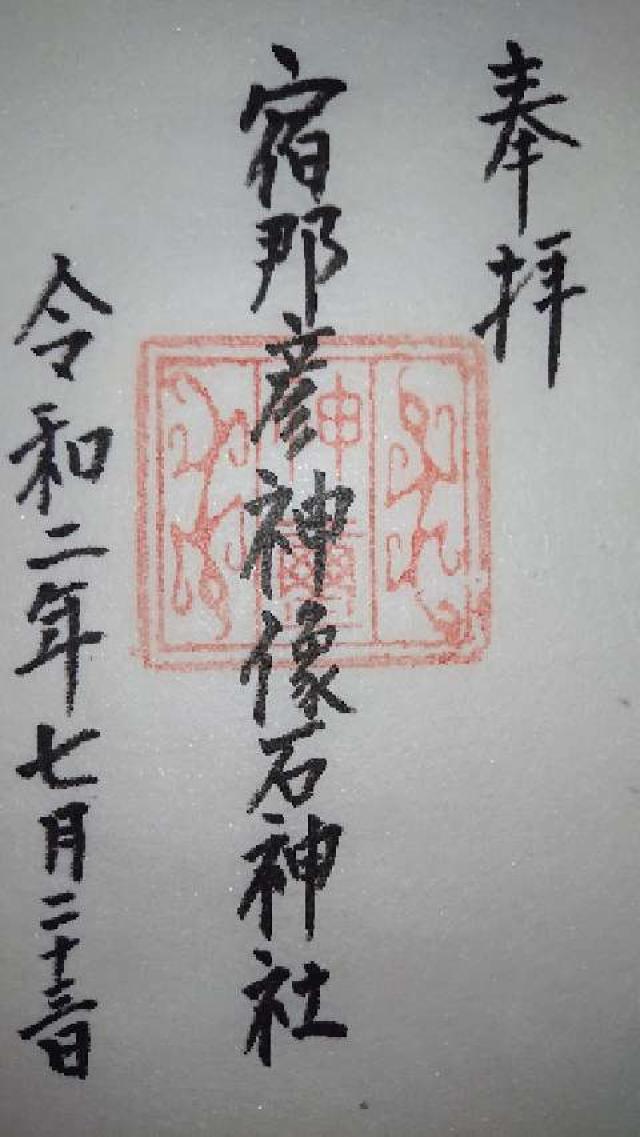 奉拝
宿那彦神像石神社
令和二年七月二十三日